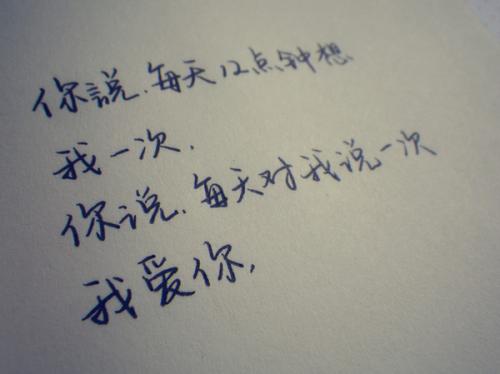 你説.每天12点钟想
我一次.
你说.每天对我说一次
我爱你.